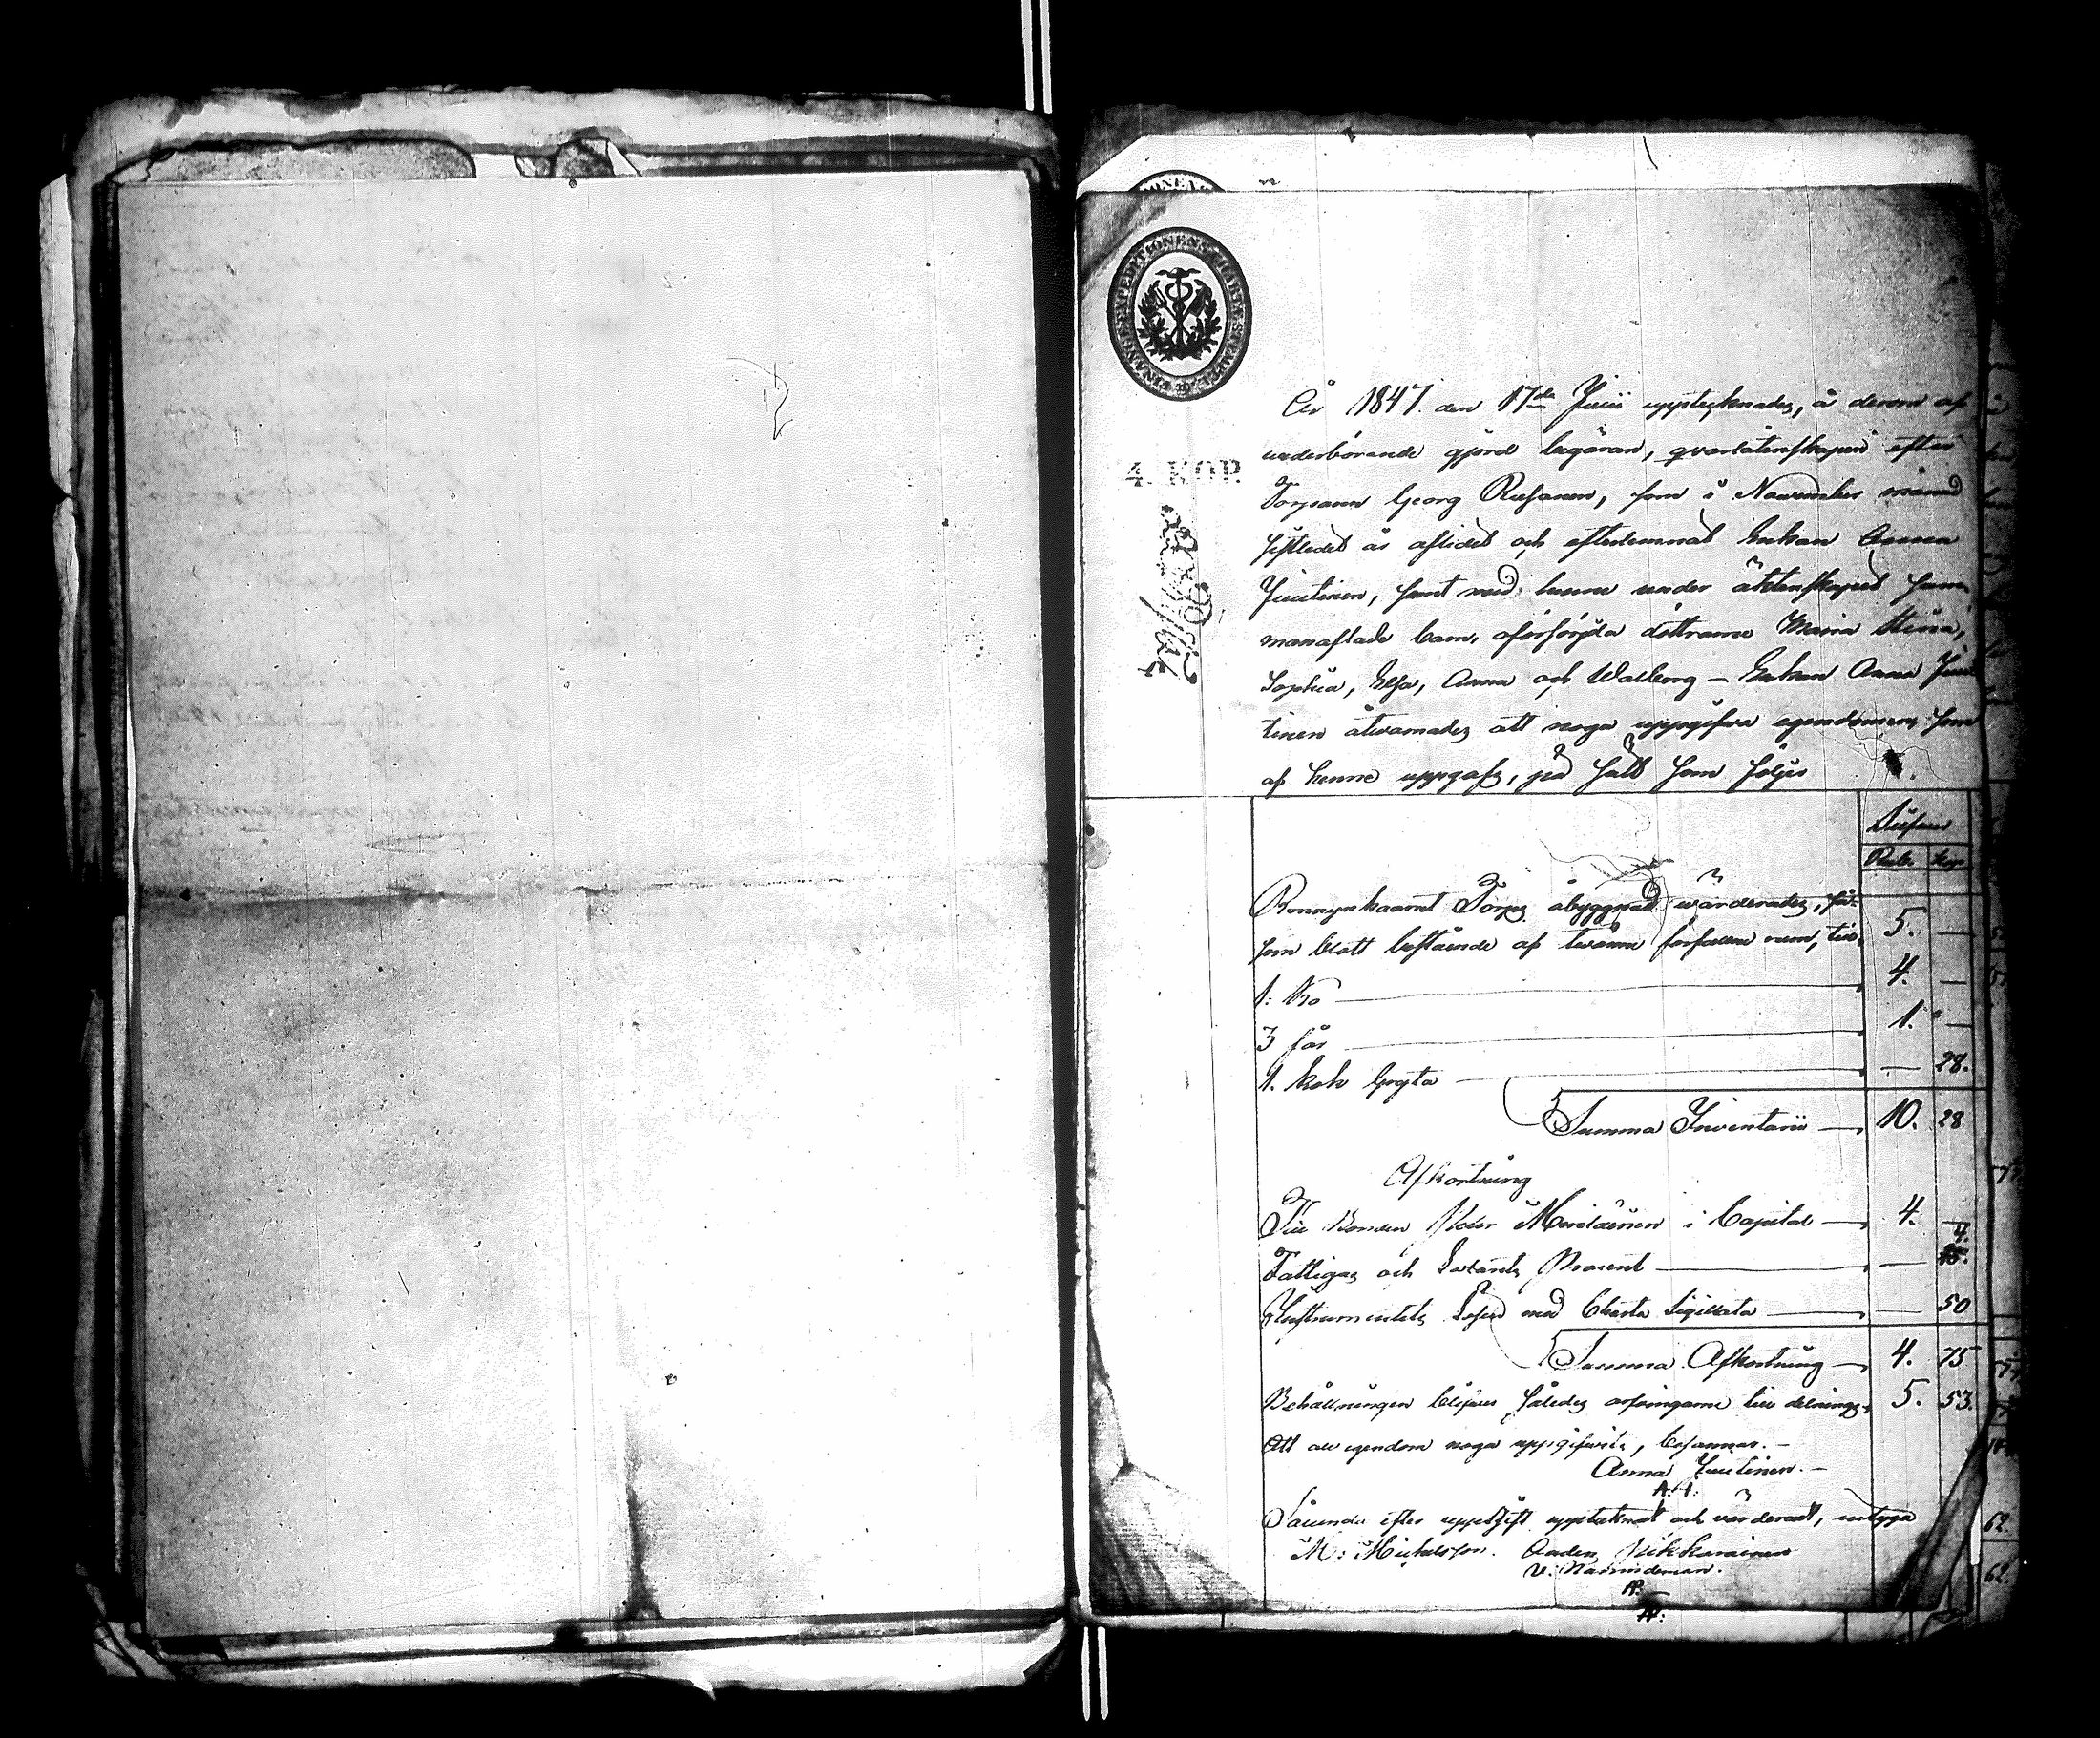 FINANCE EXPEDITIONENS CHARTÆ STEMPEL
4. KOP.
År 1847. den 17de Junii upptecknades, å derom af
wederbörande gjord begäran, qvarlåtenskapen efter
Torparen Georg som i November månad
sistledet år aflidet och efterlemnat Enkan Anna
Juutinen, samt med henne under äktenskapet sam-
manaflade barn, oförsörjda döttrarne Maria Stina,
Sophia, Elsa, Anna och Walborg – Enkan Anna Juu-
tinen åtwarnades att noga uppgifwa egendomen, som
af henne uppgafs, på sätt som följer
Silfwer
Rub. Kop.
Torps åbyggnad wärderades, så-
som blott bestående af twänne förfallne rum, till 5. —
1. Ko 4. —
3 får 1. —
1. kok gryta — 28.
Summa Inventarii 10. 28
Afkortning
Till Bonden Peter i Capital 4. —
Fattigas och Procent —
Instrumentets Lösen med Charta Sigillata — 50
Summa Afkortning 4. 75
Behållningen blifver således arfwingarne till delning 5. 53.
Att all egendom noga uppgifwits, besannar. –
Anna Juutinen. –
Sålunda efter uppgift upptecknat och värderadt, intyga
M: Michelsson. Anders
v. Nämndeman.
62.
62.